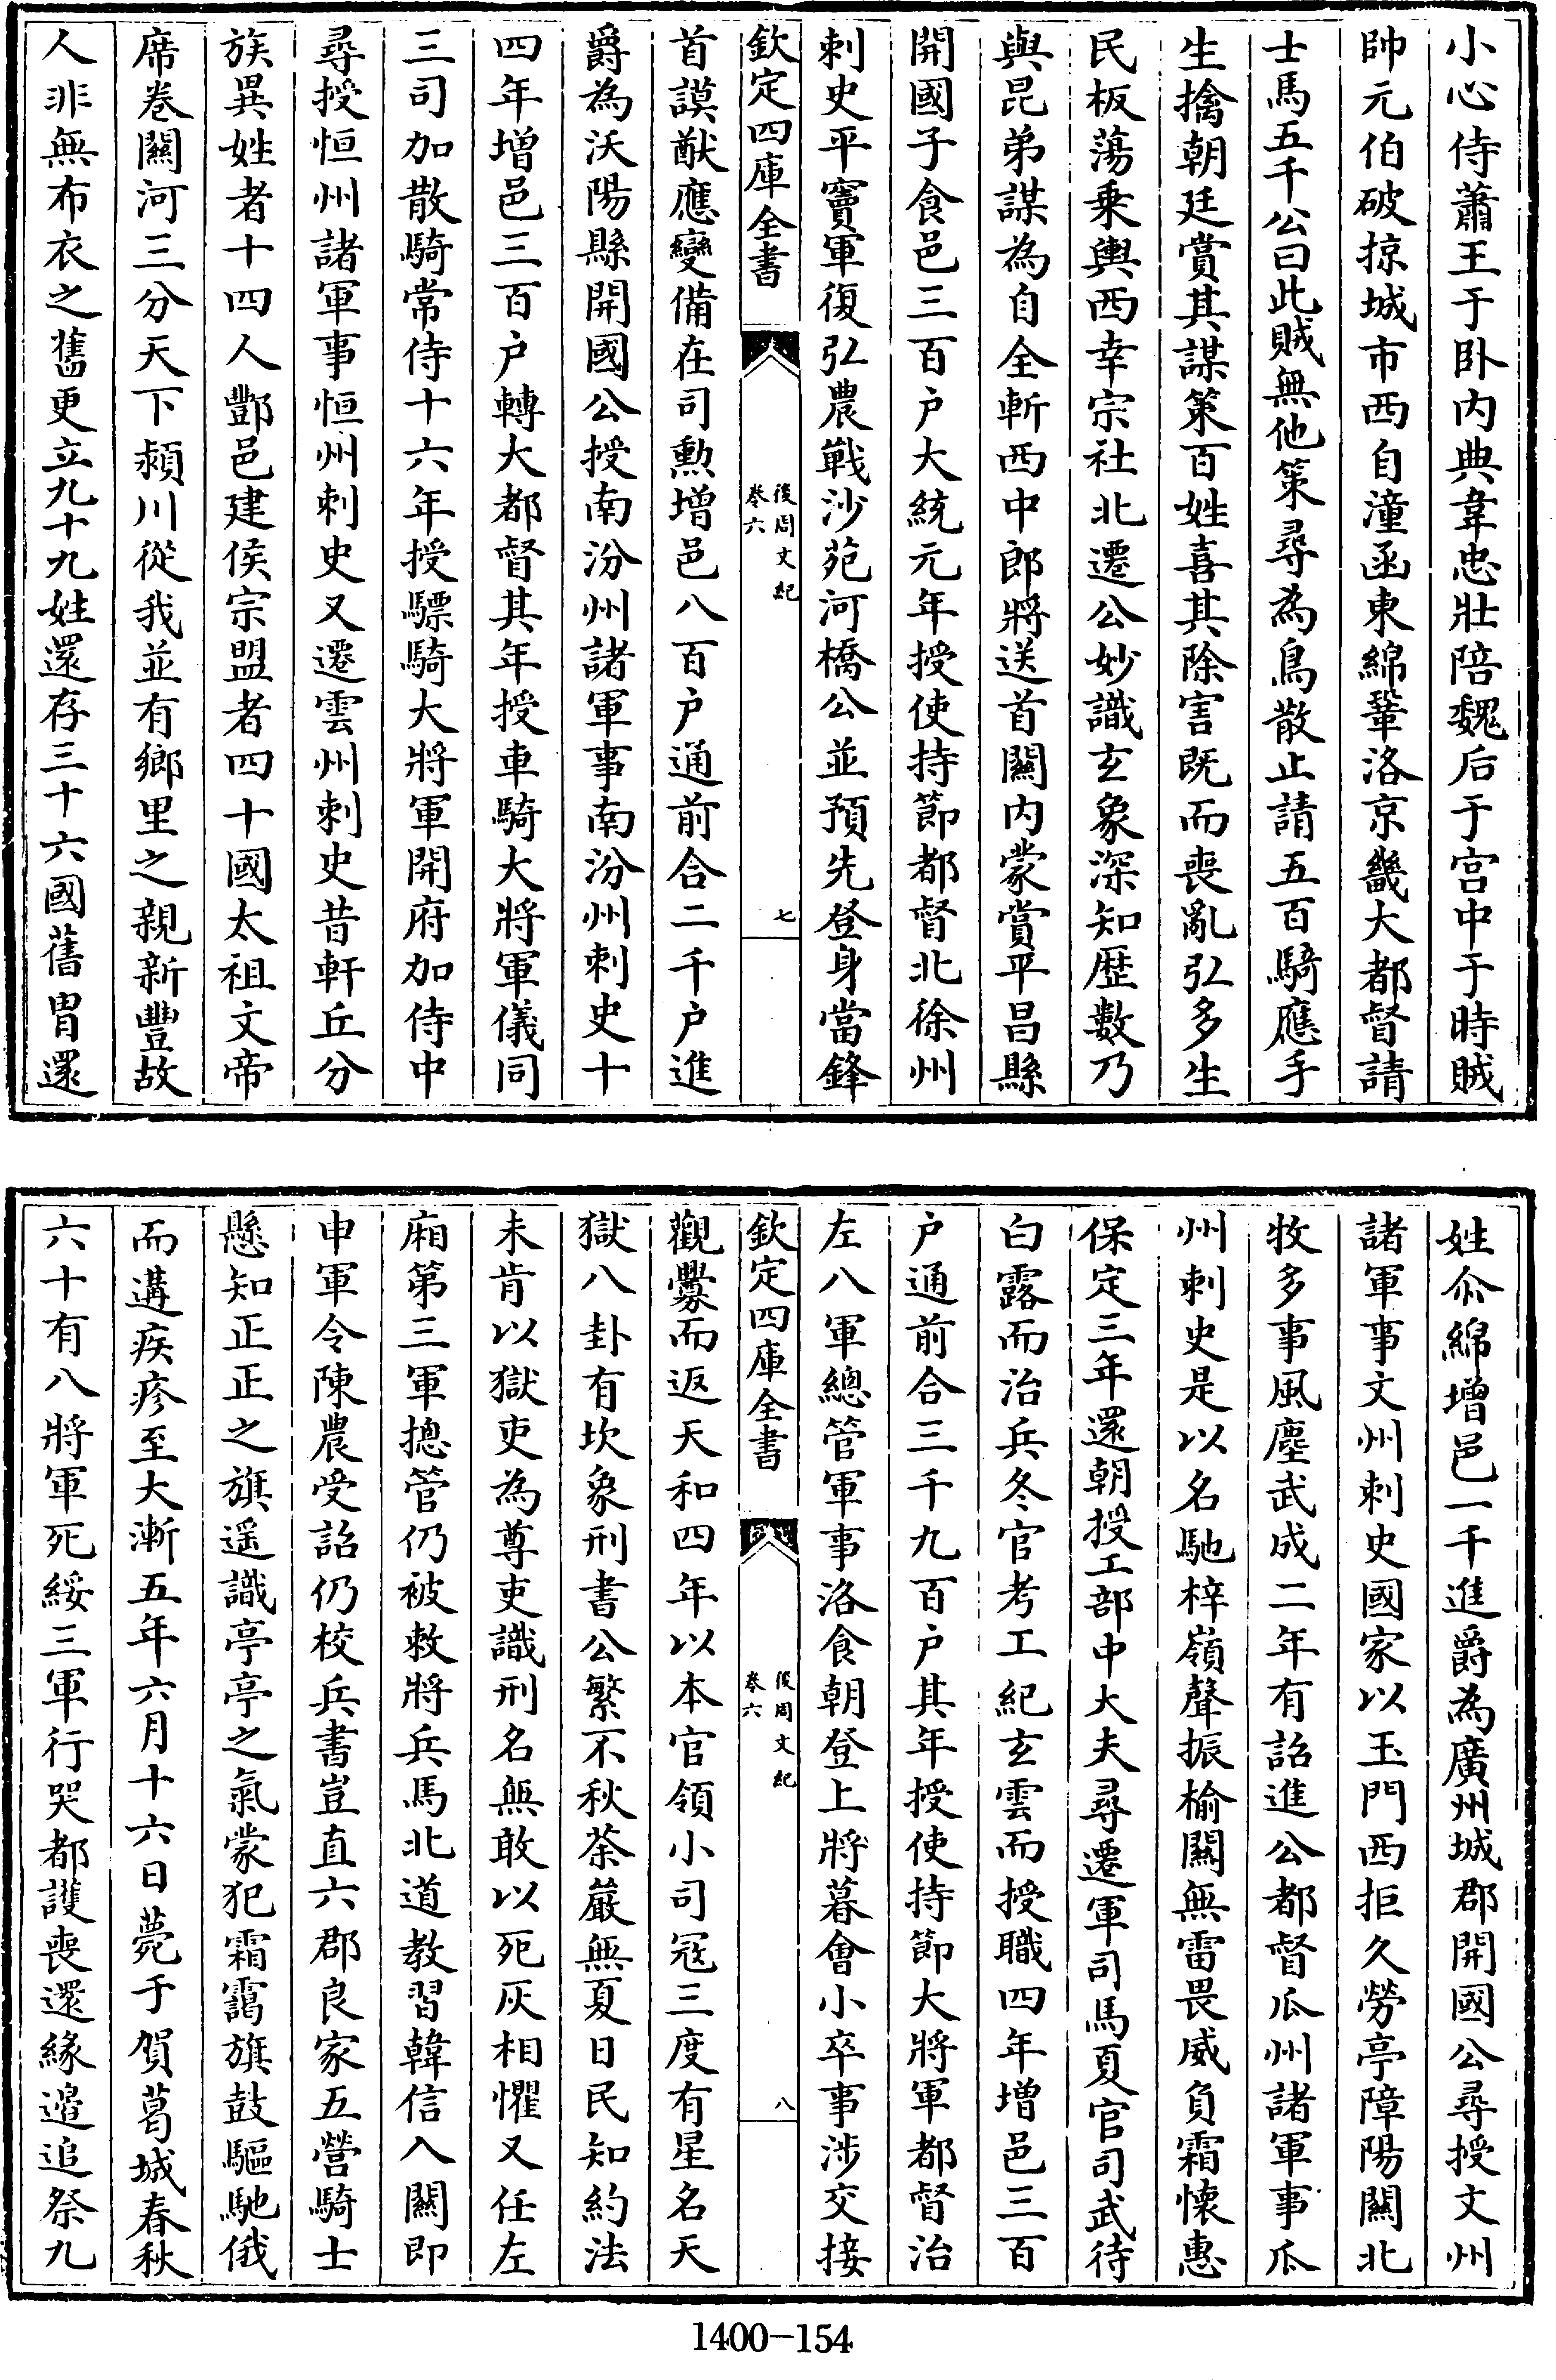 小心侍蕭王于卧内典韋忠壯陪魏后于宫中于時賊
帥元伯破掠城市西自潼函東綿鞏洛京畿大都督請
士馬五千公曰此賊無他策尋為鳥散止請五百騎應手
生擒朝廷賞其謀策百姓喜其除害既而喪亂弘多生
民板蕩乗輿西幸宗社北遷公妙識玄象深知歴數乃
與昆弟謀為自全斬西中郎將送首關内蒙賞平昌縣
開國子食邑三百户大統元年授使持節都督北徐州
刺史平竇軍復弘農戰沙苑河橋公並預先登身當鋒
欽定四庫全書
後周文紀
卷六
七
首謨猷應變備在司勲增邑八百户通前合二千户進
爵為沃陽縣開國公授南汾州諸軍事南汾州刺史十
四年增邑三百户轉大都督其年授車騎大將軍儀同
三司加散騎常侍十六年授驃騎大將軍開府加侍中
尋授恒州諸軍事恒州刺史又遷雲州刺史昔軒丘分
族異姓者十四人酆邑建侯宗盟者四十國太祖文帝
席卷關河三分天下潁川從我並有鄉里之親新豐故
人非無布衣之舊更立九十九姓還存三十六國舊胄還
姓尒綿增邑一千進爵為廣州城郡開國公尋授文州
諸軍事文州刺史國家以玉門西拒久勞亭障陽關北
牧多事風塵武成二年有詔進公都督瓜州諸軍事瓜
州刺史是以名馳梓嶺聲振榆關無雷畏威負霜懷惠
保定三年還朝授工部中大夫尋遷軍司馬夏官司武待
白露而治兵冬官考工紀玄雲而授職四年增邑三百
户通前合三千九百户其年授使持節大將軍都督治
左八軍總管軍事洛食朝登上將暮會小卒事涉交接
欽定四庫全書
後周文紀
卷六
八
觀釁而返天和四年以本官領小司冦三度有星名天
獄八卦有坎象刑書公繁不秋荼嚴無夏日民知約法
未肯以獄吏為尊吏識刑名無敢以死灰相懼又任左
廂第三軍摠管仍被敕將兵馬北道教習韓信入關即
申軍令陳農受詔仍校兵書豈直六郡良家五營騎士
懸知正正之旗遥識亭亭之氣蒙犯霜靄旗鼓驅馳俄
而遘疾疹至大漸五年六月十六日薨于賀葛城春秋
六十有八將軍死綏三軍行哭都䕶喪還緣邉追祭九
1400-154